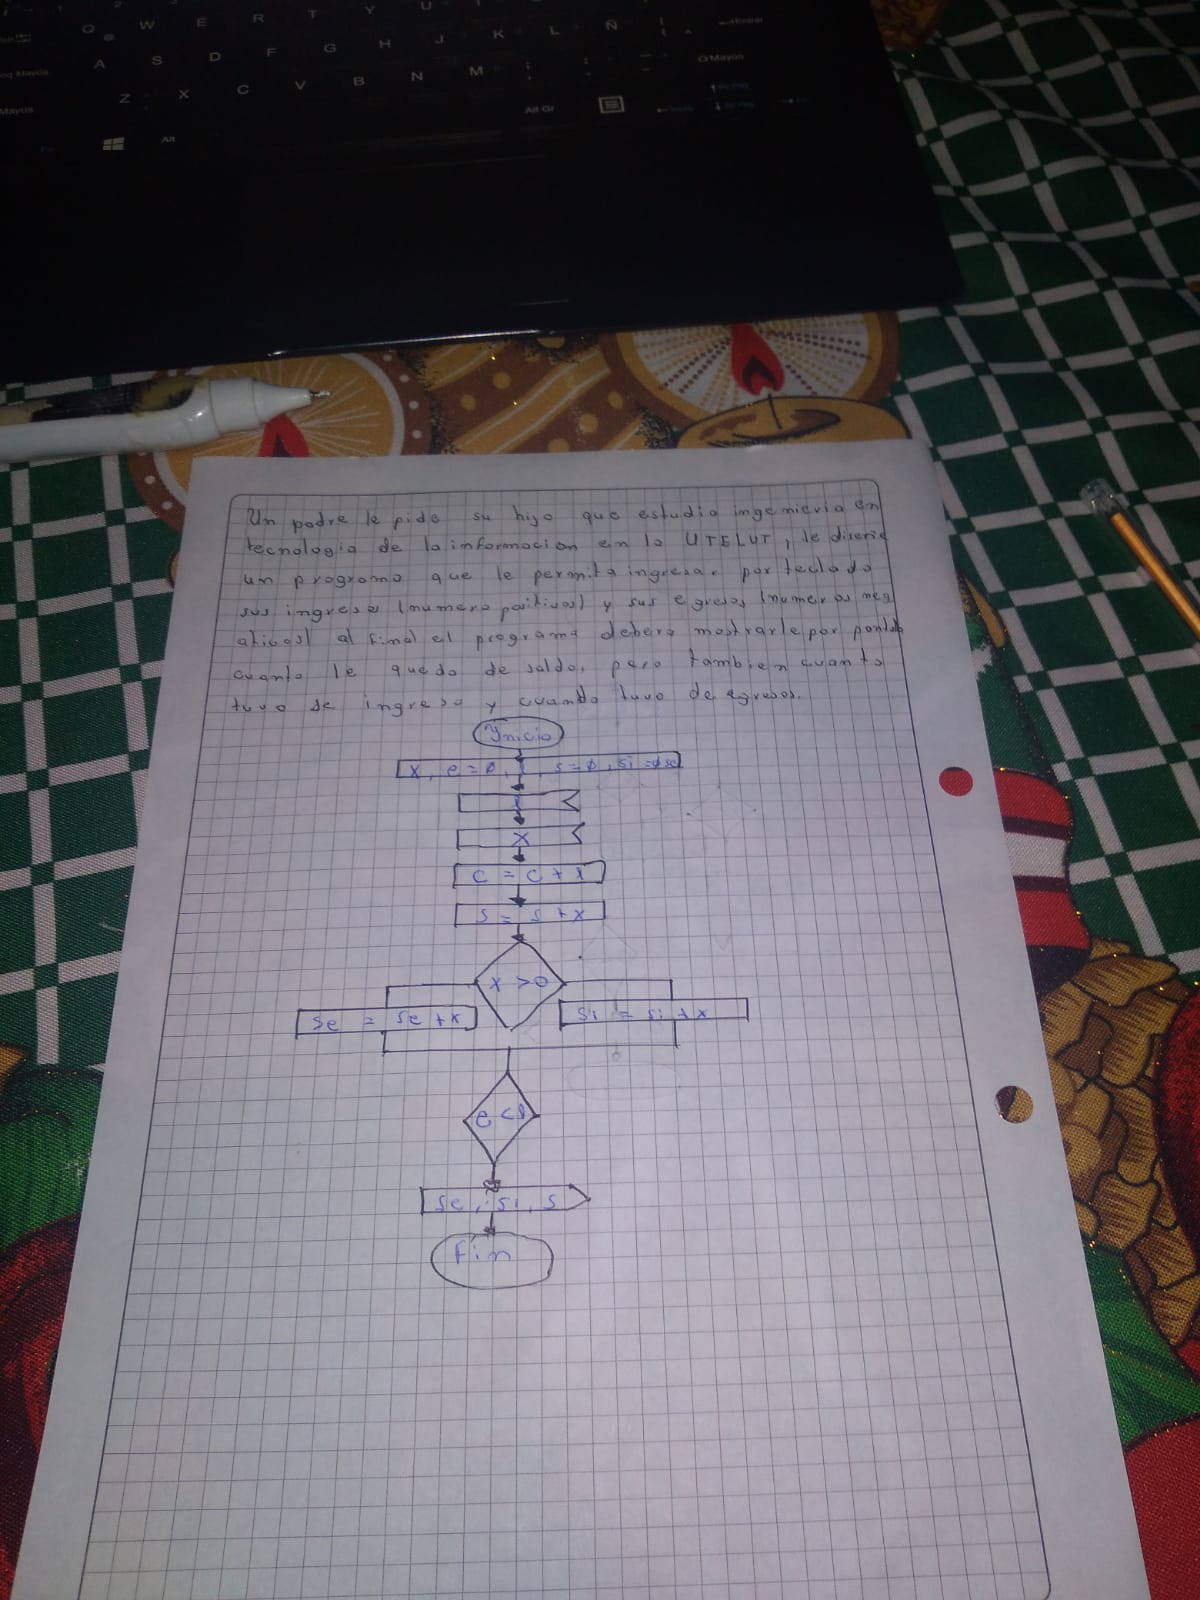 Q W E R T Y U
A S D F G H J K L Ñ
Mayús
Z X C V B N M
Mayus
Alt Gr
Alt
Un padre le pide su hijo que estudia ingenieria en
tecnologia de la informacion en la UTELVT, le diseñe
un programa que le permita ingresar por teclado
sus ingresos (numero positivos) y sus egresos (numeros neg
ativos) al final el programa debera mostrarle por pantalla
cuanto le quedo de saldo, pero tambien cuanto
tuvo de ingreso y cuando tuvo de egresos.
Inicio
x, e=0, , s=0, si=0 se
x
c = c + x
s = s + x
x >0
se = se +x si = si +x
e <
se, si, s
fin